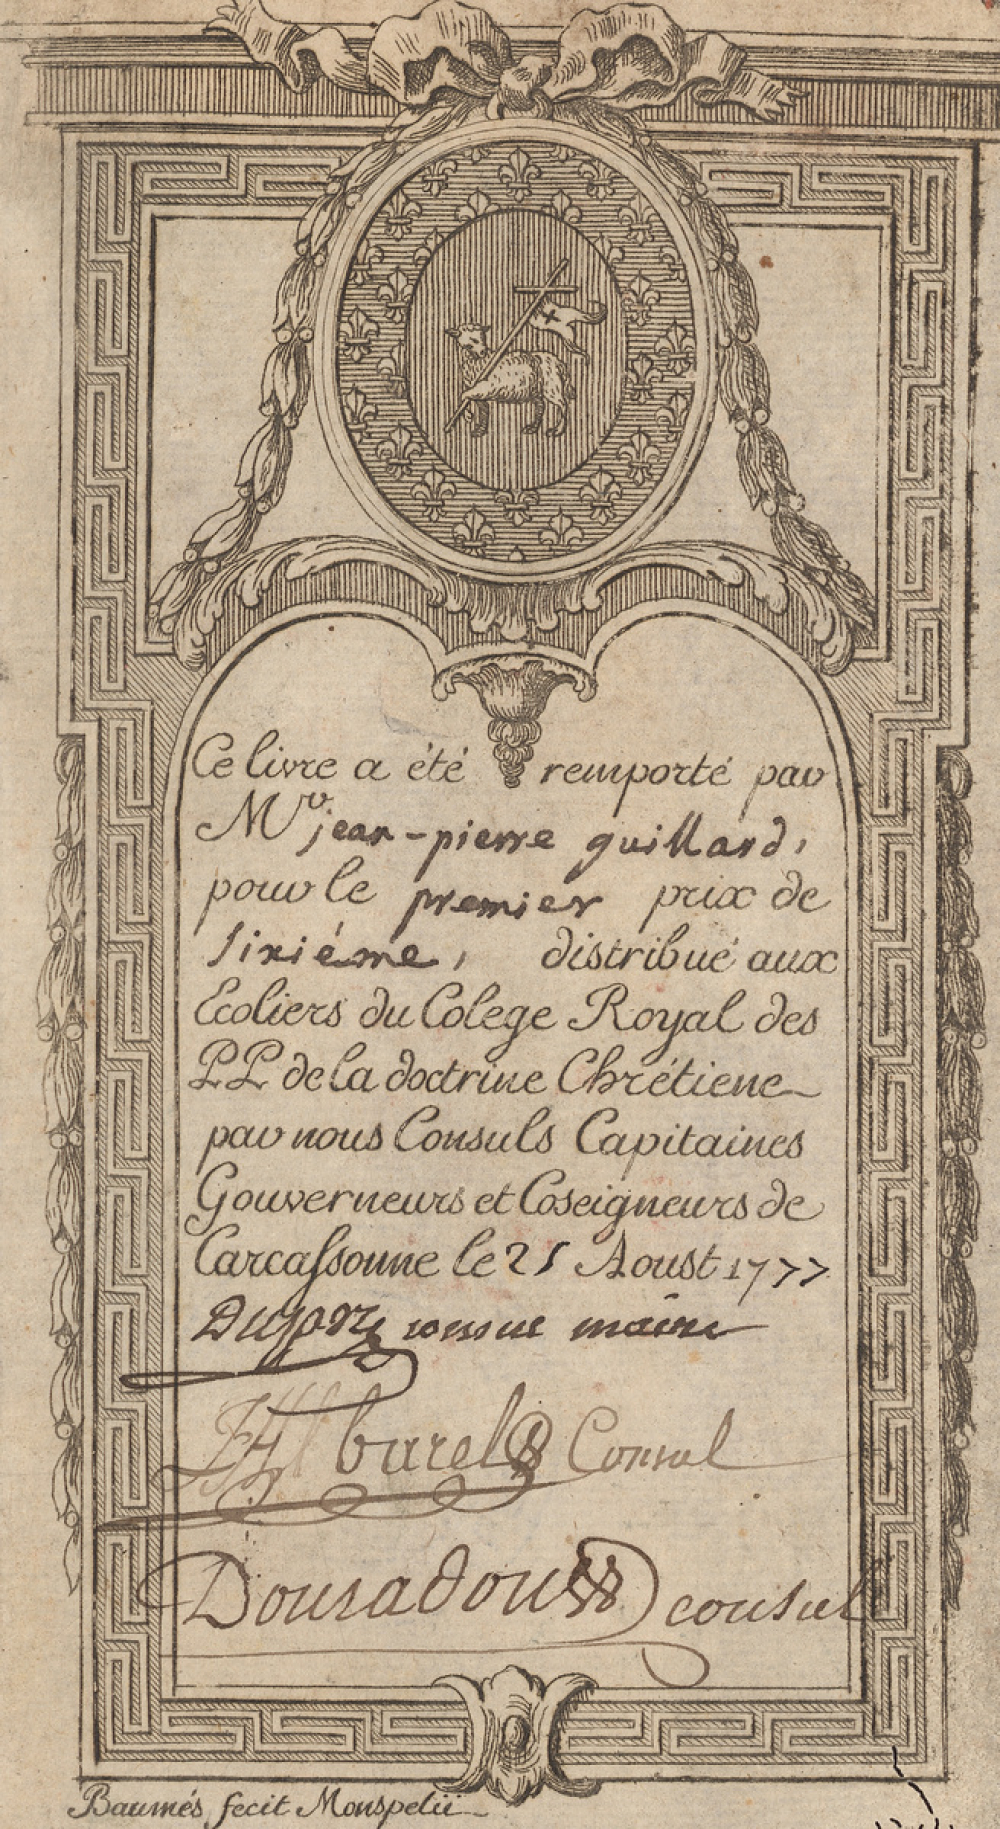 Ce livre a été remporté par
Mr. jean-pierre guillard,
pour le premier prix de
sixiéme, distribué aux
Ecoliers du Colege Royal des
PP de la doctrine Chrétiene
par nous Consuls Capitaines
Gouverneurs et Coseigneurs de
Carcassonne le 25 Aoust 1777
consul maire
Consul
Dousadou consul
Baumés fecit Monspelii